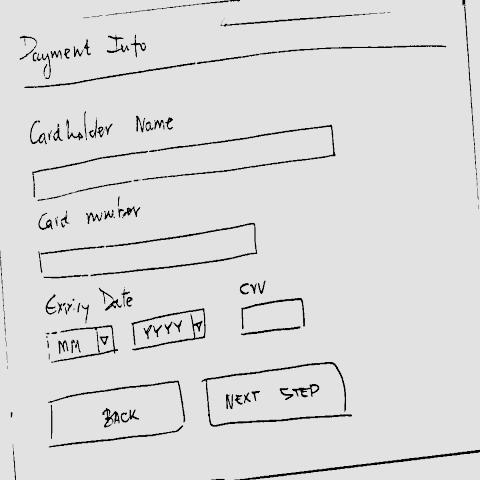 Payment Info
Cardholder Name
Card number
Expiry Date
CVV
MM
YYYY
BACK
NEXT STEP